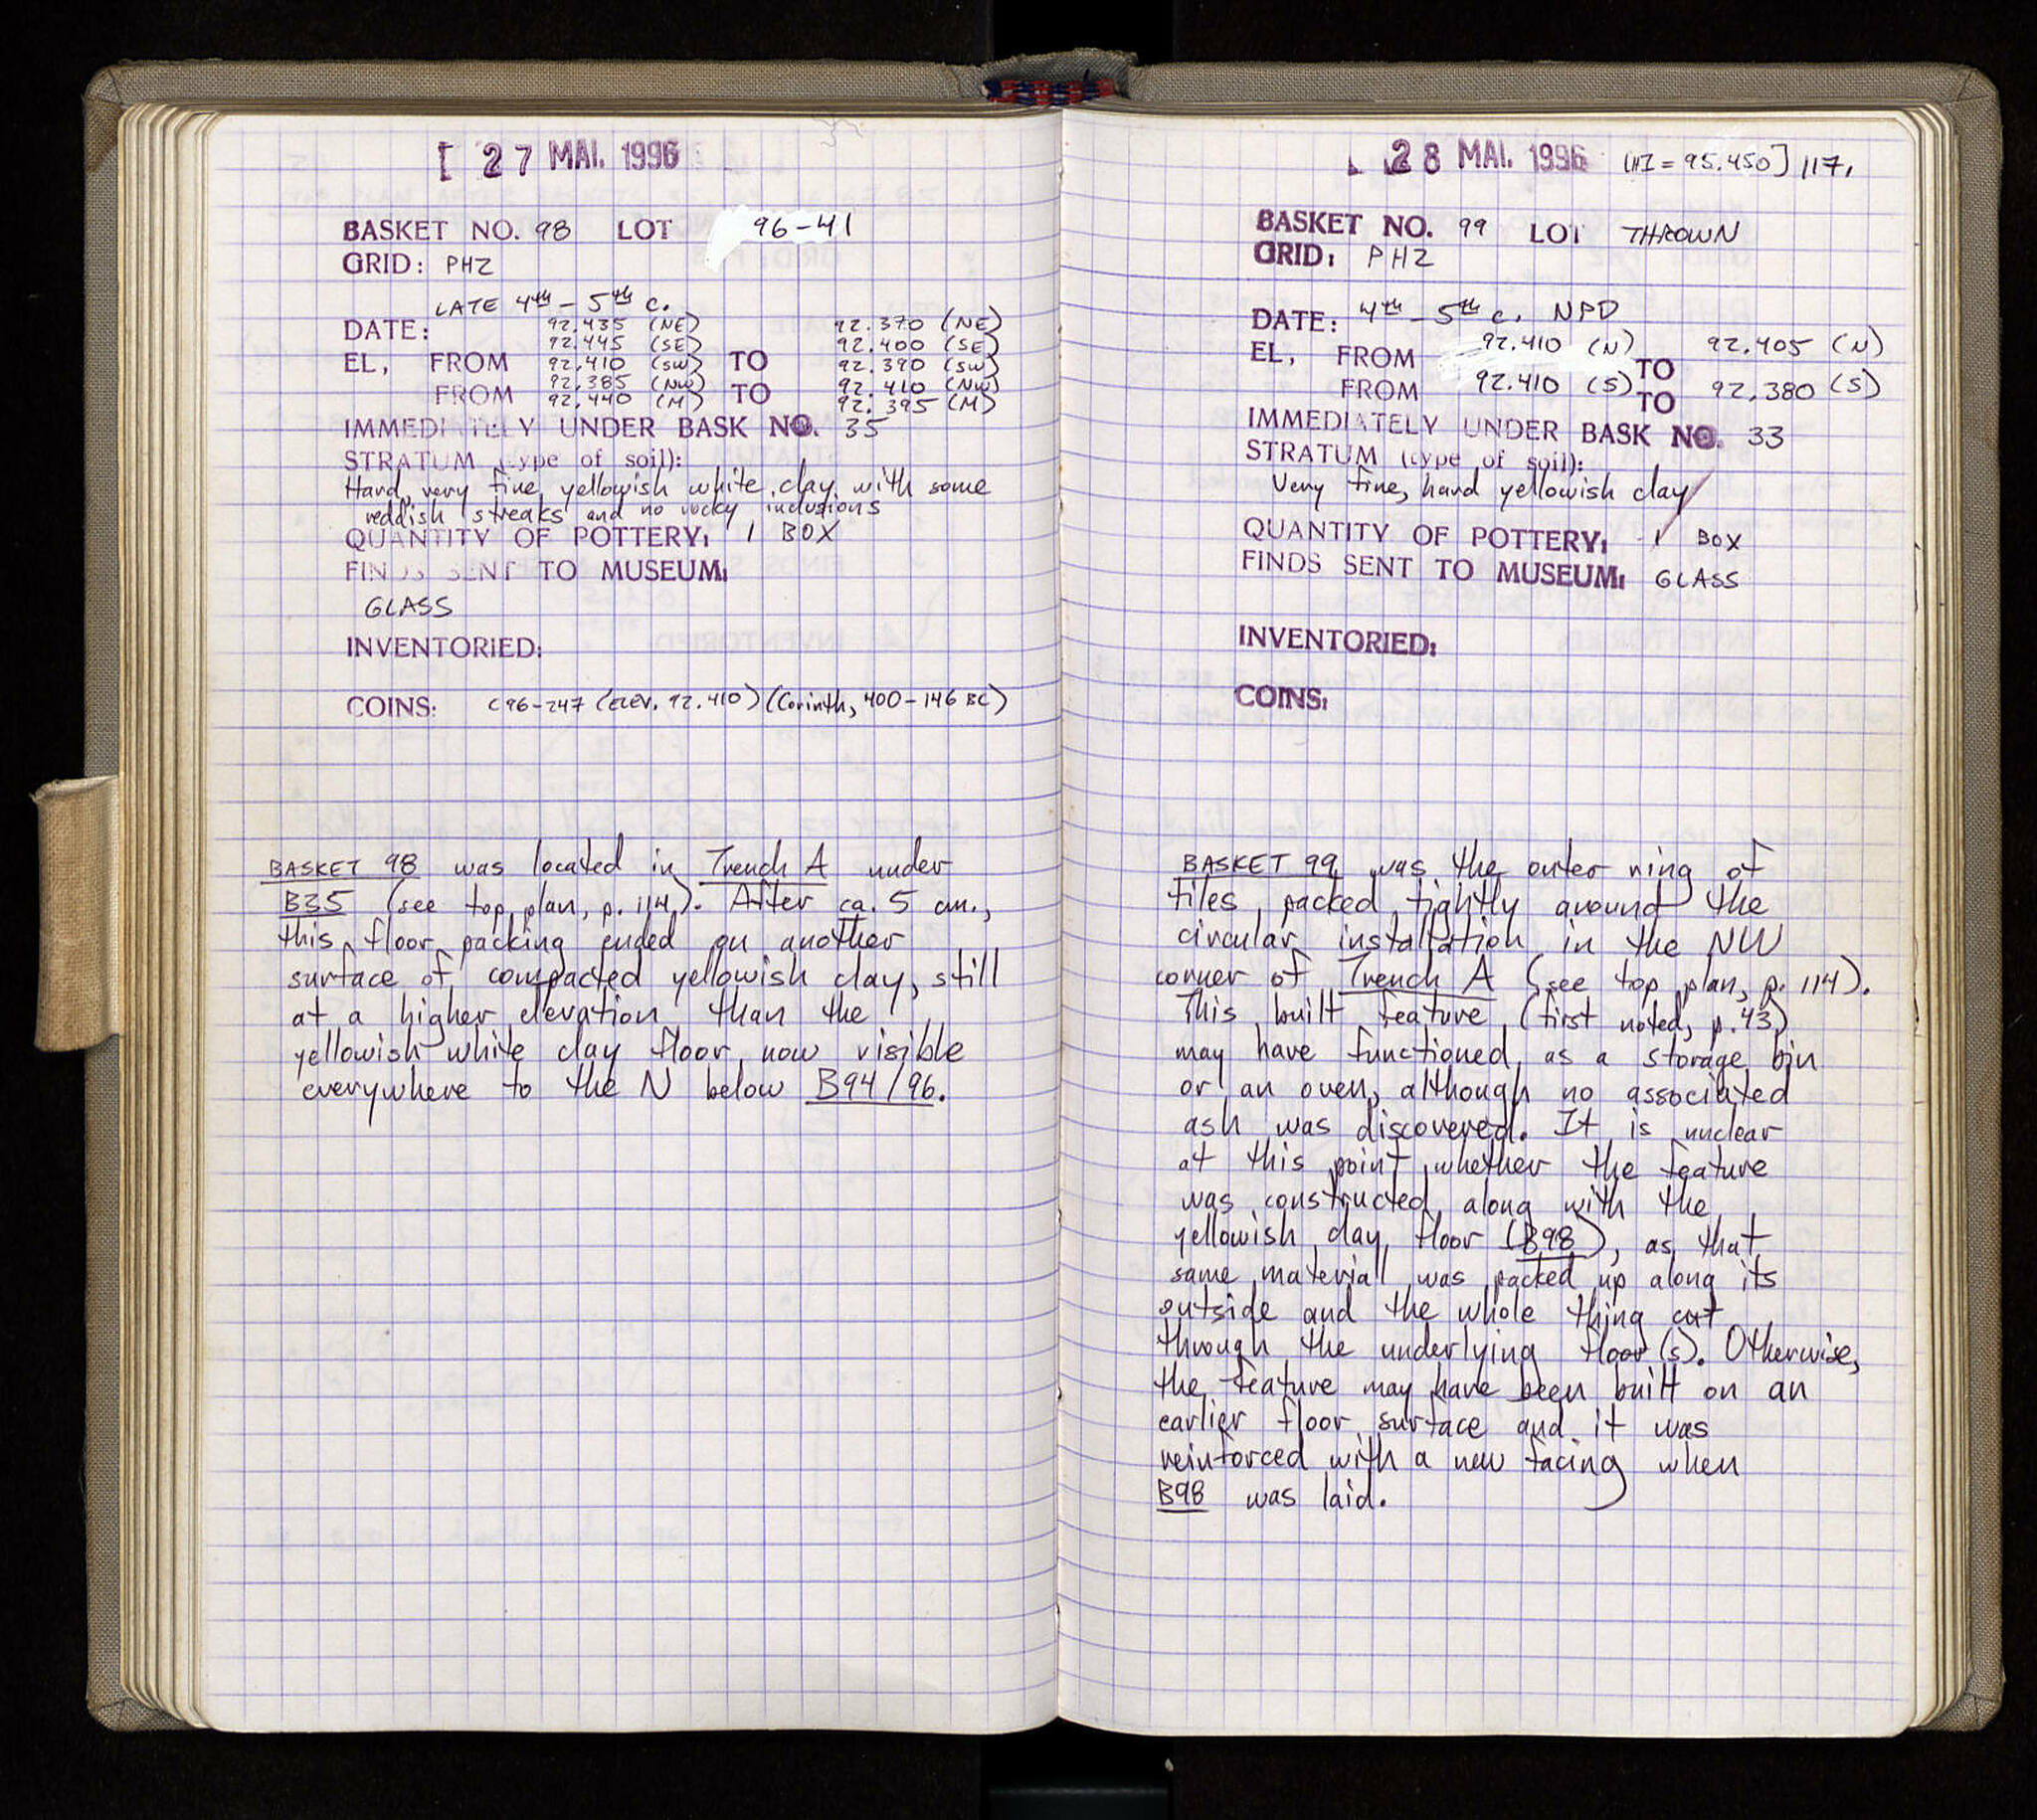 [ 27 MAI. 1996
BASKET NO. 98 LOT 96-41
GRID: PHZ
LATE 4th - 5th c.
DATE:
92.435 (NE) 92.370 (NE)
92.445 (SE) 92.400 (SE)
EL, FROM 92.410 (SW) TO 92.390 (SW)
92.385 (NW) 92.410 (NW)
FROM 92.440 (M) TO 92.395 (M)
IMMEDIATELY UNDER BASK NO. 35
STRATUM (type of soil):
Hard, very fine, yellowish white, clay, with some
reddish streaks and no rocky inclusions
QUANTITY OF POTTERY: 1 BOX
FINDS SENT TO MUSEUM:
GLASS
INVENTORIED:
COINS: C96-247 (ELEV. 92.410) (Corinth, 400-146 BC)
BASKET 98 was located in Trench A under
B35 (see top plan, p. 114). After ca. 5 cm.,
this floor packing ended on another
surface of compacted yellowish clay, still
at a higher elevation than the
yellowish white clay floor now visible
everywhere to the N below B94/96.
28 MAI. 1996 [HI = 95.450] 117.
BASKET NO. 99 LOT THROWN
GRID: PHZ
DATE: 4th - 5th c. NPD
EL, FROM 92.410 (N) TO 92.405 (N)
FROM 92.410 (S) TO 92.380 (S)
IMMEDIATELY UNDER BASK NO. 33
STRATUM (type of soil):
Very fine, hard yellowish clay
QUANTITY OF POTTERY: 1 BOX
FINDS SENT TO MUSEUM: GLASS
INVENTORIED:
COINS:
BASKET 99 was the outer ring of
tiles packed tightly around the
circular installation in the NW
corner of Trench A (see top plan, p. 114).
This built feature (first noted, p. 43)
may have functioned as a storage bin
or an oven, although no associated
ash was discovered. It is unclear
at this point whether the feature
was constructed along with the
yellowish clay floor (B98), as that
same material was packed up along its
outside and the whole thing cut
through the underlying floor(s). Otherwise,
the feature may have been built on an
earlier floor surface and it was
reinforced with a new facing when
B98 was laid.